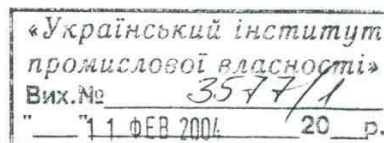 «Український інститут
промислової власності»
Вих.№ 3577/1
"___" 11 ФЕВ 2004 20__р.